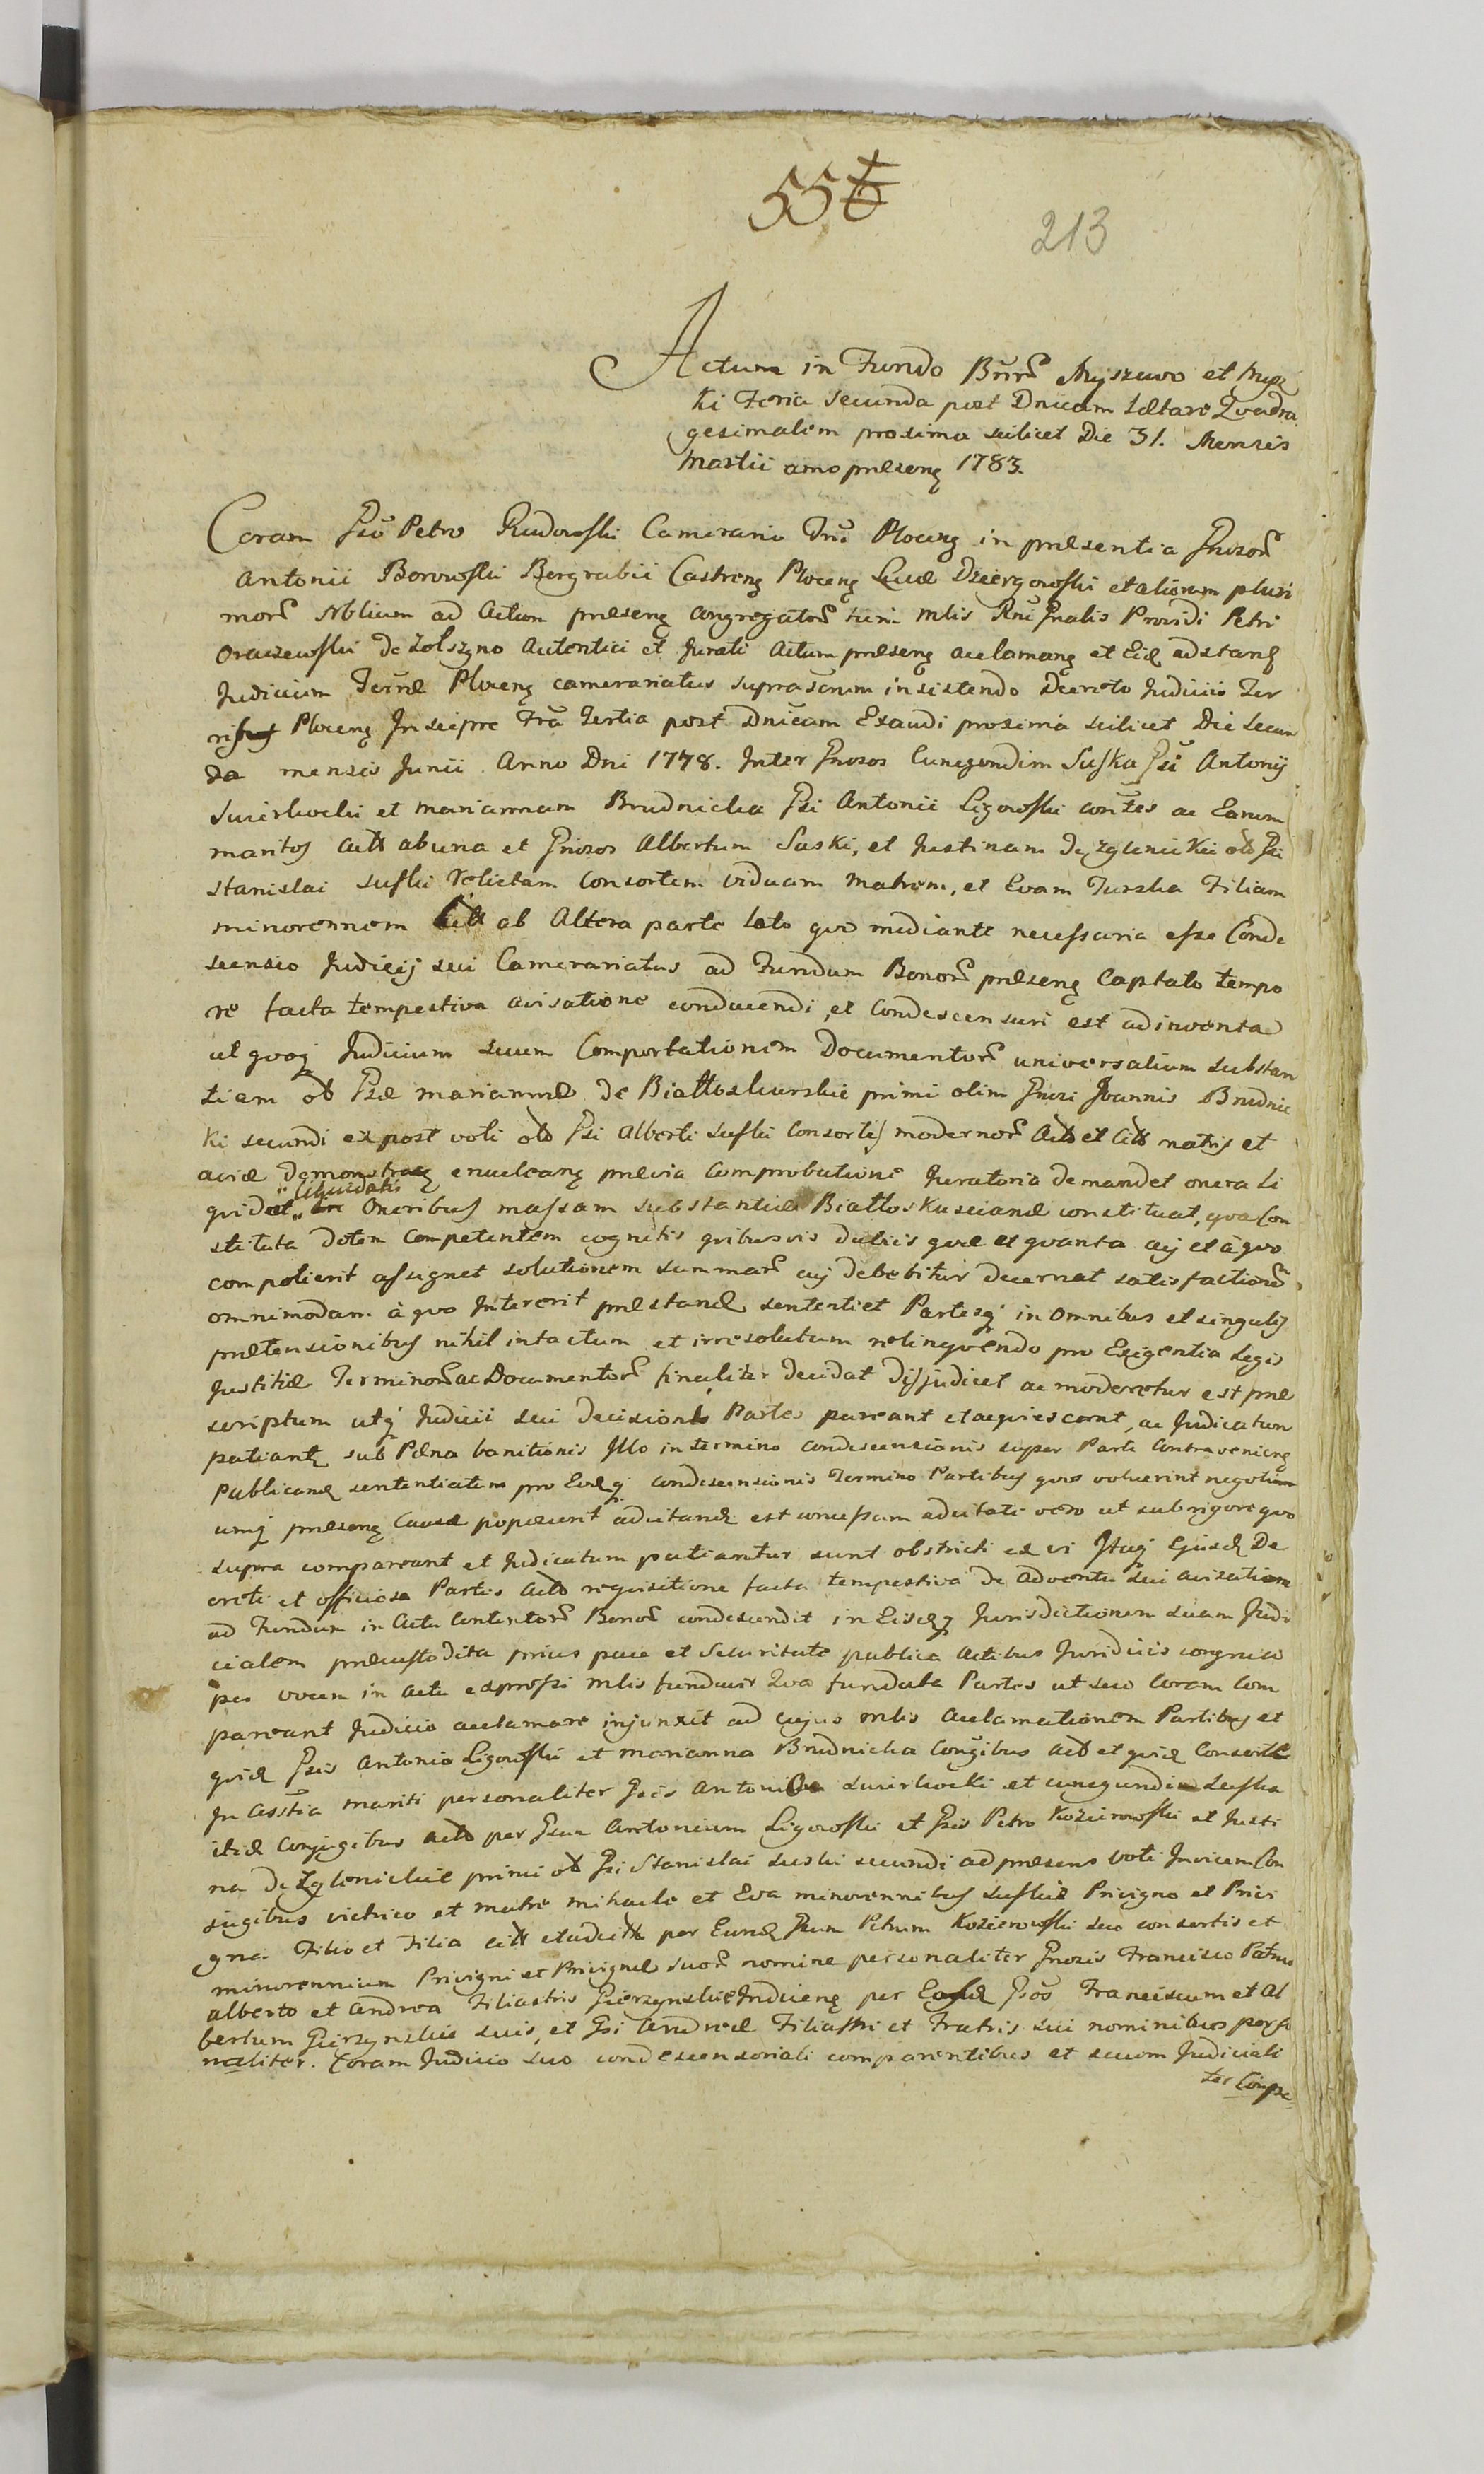 556
213
Actum in Fundo Bnrũ Myszewo et Mysz
ki Feria secunda post Dnicam Lætare Qvadra
gesimalem proxima scilicet Die 31. Mensis
Martii anno præsenę 1783.
Coram Gso Petro Rudowski Camerario Trrũ Plocenę in præsentia Gnosorũ
Antonii Borowski Burgrabii Castrenę Plocenę Lucæ Dziergowski et aliorum pluri
morũ Nobilium ad Actum præsenę congregatorũ tum Mlis Rni Gnalis Providi Petri
Oraczewski de Autentici et Jurati Actum præsenę acclamanę et Eid adstanę
Judicium Terræ Plocenę camerariatus suprascrium insistendo Decreto Judicii Ter
ris Plocenę In Sierpc Fria Tertia post Dnicam Exaudi proxima scilicet Die secun
da mensis Junii Anno Dni 1778. Inter Gnosos Cunegundim Suska Gsi Antonij
Swierkocki et Mariannam Brudnicka Gsi Antonii Ligowski contes ac Earum
maritos Actt ab una et Gnosos Albertum Suski, et Justinam de Zglenickie olĩ Gsi
Stanislai Suski relictam Consortem viduam Matrem, et Evam Suska Filiam
minorennem Citt ab Altera parte lato qvo mediante necessaria esse Conde
scensio Judicij sui Camerariatus ad Fundum Bonorũ præsenę Captato tempo
re facta tempestiva avisatione conducendi, et Condescensuri est adinventa
ut qvoqȝ Judicium suum Comportationem Documentorũ universalium substan
tiam olĩ Gsæ Mariannæ de Białłoskurskie primi olim Gnosi Joannis Brudnic
ki secundi expost voti olĩ Gsi Alberti Suski Consortis modernorũ Actt et Citt natis et
aviæ demonstranę enucleanę prævia Comprobatione Juratoria demandet onera li
qvidet, "liquidatis" Oneribus massam substantiæ Białłoskusciana constituat, qva Con
stituta dotem Competentem cognitis qvibusvis dubiis qvæ et qvanta cuj et à qvo
competierit assignet solutionem summarũ cuj debebitur decernat satisfactionẽ
omnimodam à qvo Intererit præstandę sententiet Partesqȝ in omnibus et singulis
prætensionibus nihil intactum et irresolutum relinqvendo pro Exigentia Legis
Justitiæ Terminorũ ac Documentorũ finaliter decidat disjudicet ac moderetur est præ
scriptum utqȝ Judicii sui decisioni Partes pareant et acqviescant, ac Judicatum
patiantę sub Pœna banitionis Illo in termino condescensionis super Parte Contravenienę
Publicandę sententiatum pro Eodqȝ condescensionis Termino Partibus qvos voluerint negotium
umqȝ præsenę Causæ poposcerit adcitandę est concessum adcitati vero ut sub rigore qvo
supra compareant et Judicatum patiantur sunt obstricti ex vi Itaqȝ Ejusdę De
creti et officiosa Partis Actt reqvisitione facta tempestiva de adventu sui avisatione
ad Fundum in Actu Contentorũ Bonorũ condescendit in Eisdęqȝ Jurisdictionem suam Judi
cialem præcustodita prius pace et Securitate publica Actibus Juridicis congrua
per vocem in Actu expressi Mlis fundavit Qva fundata Partes ut suo Coram Com
pareant Judicio acclamare injunxit ad cujus Mlis Acclamationem Partibus et
qvid Gsis Antonio Ligowski et Marianna Brudnicka Conjugibus Actt et qvid Consorte
In Asstia mariti personaliter Gsis Antonio Swierkocki et Cunegundi Suska
itid Conjugibus Actt per Gsum Antonium Ligowski et Gsis Petro Kozierowski et Justi
na de Zglenickie primi olĩ Gsi Stanislai Suski secundi ad præsens voti Invicem Con
jugibus vitrico et matre Michaele et Eva minorennibus Suskie Privigno et Privi
gna. Filio et Filia citt et adcitt per Eundę Gsum Petrum Kozierowski suo consortis et
minorennium Privigni et Privignæ suorũ nomine personaliter Gnosis Francisco Patruo
Alberto et Andrea Filiastris Gierzynskie Inducenę per Eosdę Gsos Franciscum et Al
bertum Gierzynskie suis, et Gsi Andreæ Filiastri et Fratris sui nominibus perso
naliter. Coram Judicio suo condescensoriali comparentibus et secum Judiciali
ter Compa